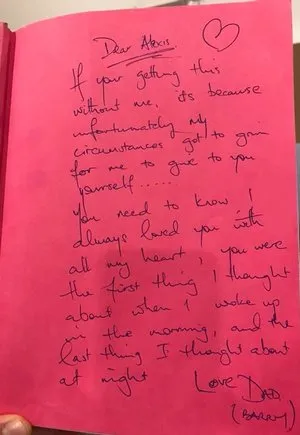 Dear Alexis
If your getting this
without me, its because
unfortunately my
circumstances got to grim
for me to give to you
yourself......
You need to know I
always loved you with
all my heart, you were
the first thing I thought
about when I woke up
in the morning, and the
last thing I thought about
at night
Love DAD
(BARRY)